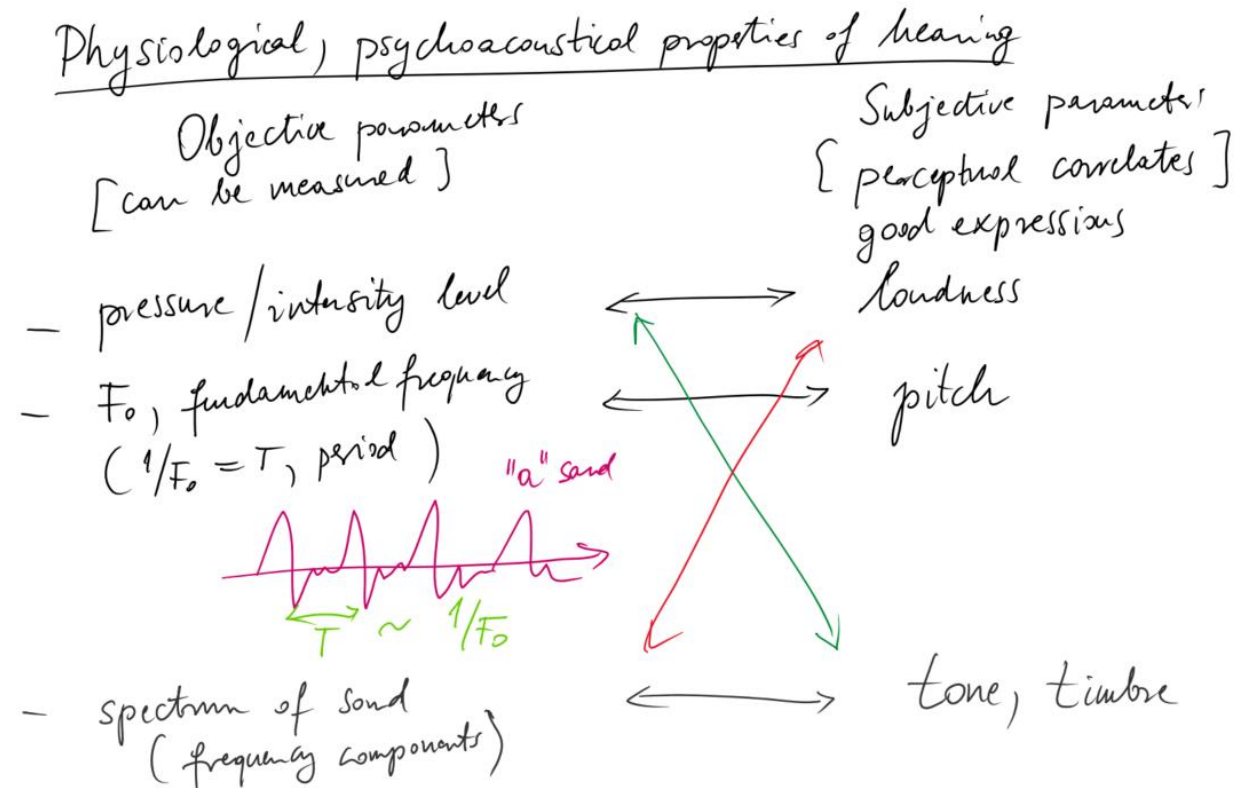 Physiological, psychoacoustical properties of hearing
Objective parameters
[can be measured]
Subjective parameters
[perceptual correlates]
good expressions
- pressure/intensity level
loudness
- F₀, fundamental frequency
pitch
(1/F₀ = T, period)
"a" sound
T ~ 1/F₀
- spectrum of sound
tone, timbre
(frequency components)